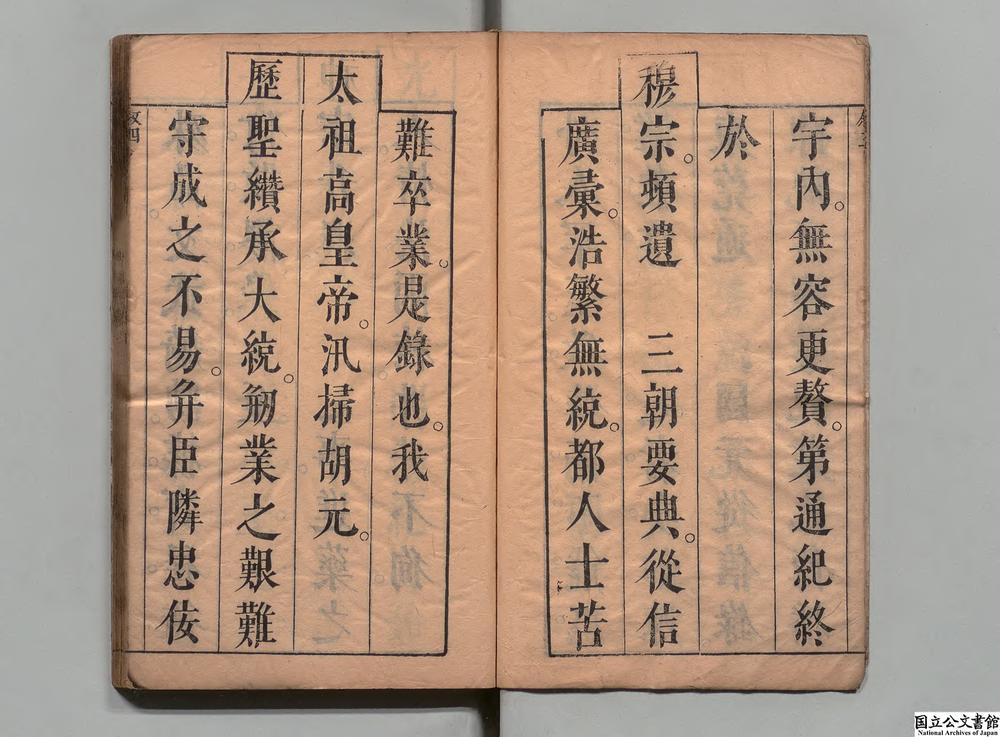 宇內。無容更贅。第通紀終
於
穆宗。頓遺　三朝要典。從信
廣彙。浩繁無統。都人士苦
難卒業。是錄也。我
太祖高皇帝。汛掃胡元。
歷聖纘承大統。剏業之艱難
守成之不易。弁臣隣忠佞
叙四
国立公文書館
National Archives of Japan